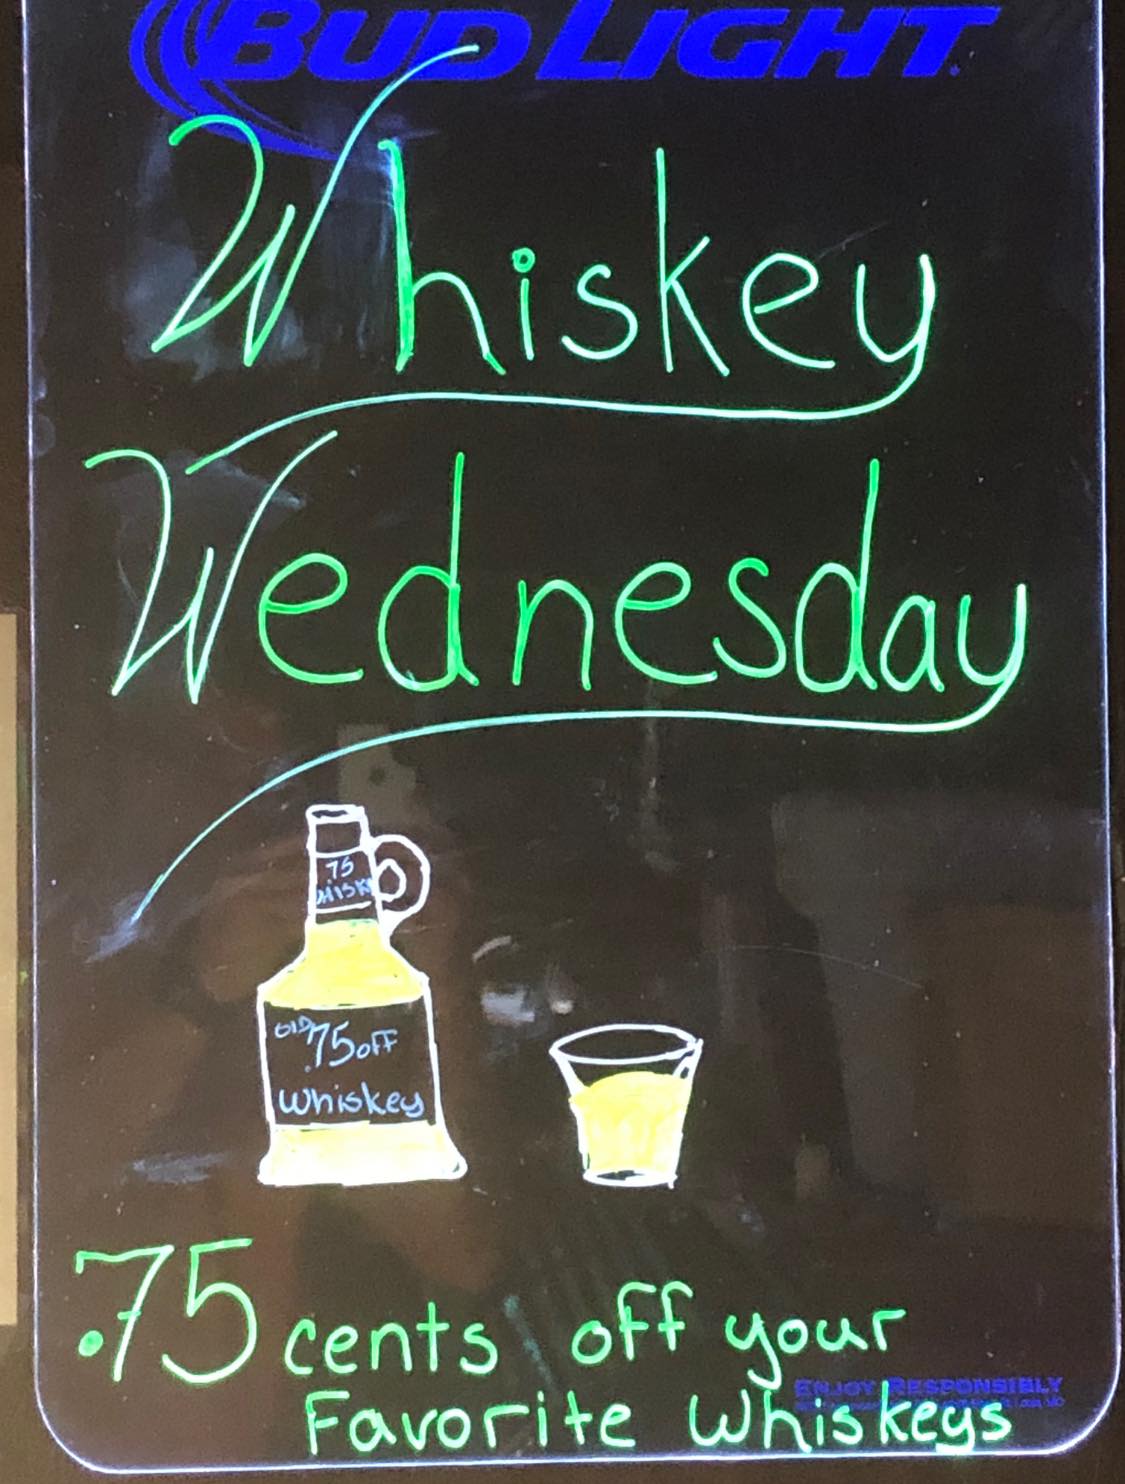 BUD LIGHT
Whiskey
Wednesday
75
OLD
.75 off
Whiskey
.75 cents off your
Favorite Whiskeys
ENJOY RESPONSIBLY